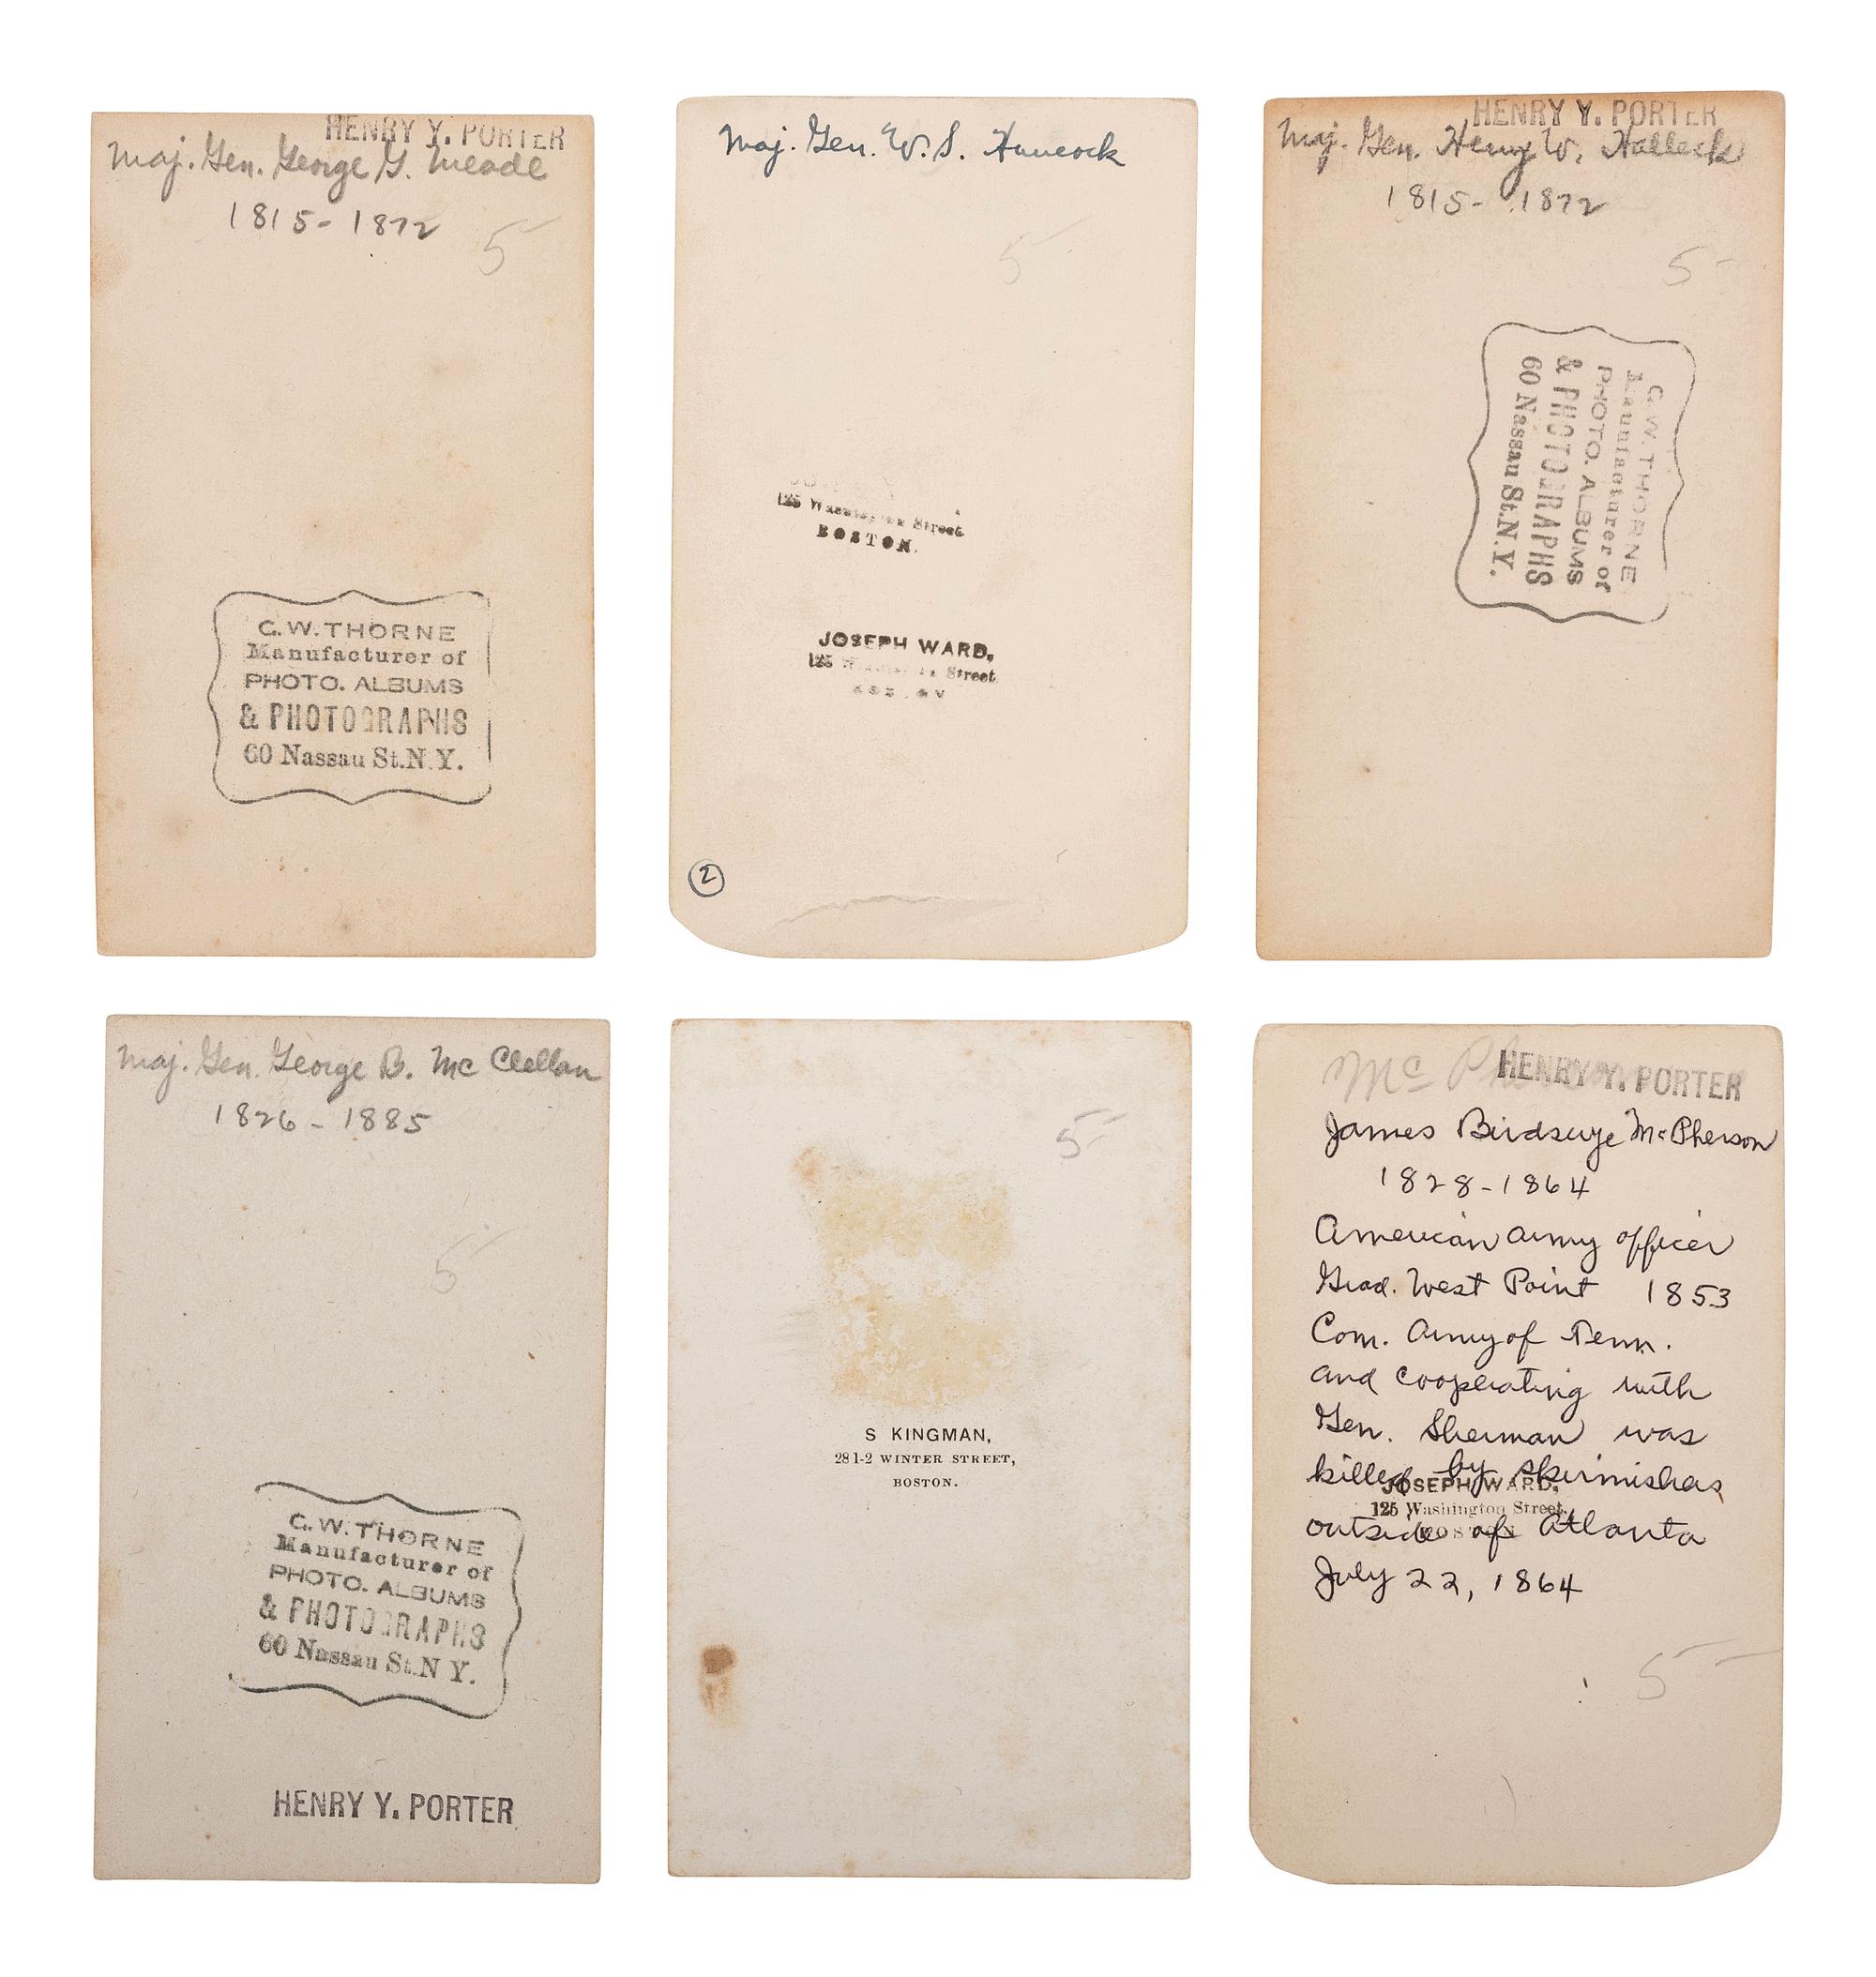 HENRY Y. PORTER
Maj. Gen. George G. Meade
1815-1872
5-
G.W. THORNE
Manufacturer of
PHOTO. ALBUMS
& PHOTOGRAPHS
60 Nassau St. N.Y.
Maj. Gen. W. S. Hancock
5-
125 Washington Street
BOSTON.
JOSEPH WARD,
125 Street
2
HENRY Y. PORTER
Maj. Gen. Henry W. Halleck
1815-1872
5-
G.W. THORNE
Manufacturer of
PHOTO. ALBUMS
& PHOTOGRAPHS
60 Nassau St. N.Y.
Maj. Gen. George B. Mc Clellan
1826-1885
5-
G.W. THORNE
Manufacturer of
PHOTO. ALBUMS
& PHOTOGRAPHS
60 Nassau St. N Y.
HENRY Y. PORTER
5-
S KINGMAN,
28 1-2 WINTER STREET,
BOSTON.
Mc Pherson
HENRY Y. PORTER
James Birdseye McPherson
1828-1864
American army officer
Grad. West Point 1853
Com. Army of Tenn.
and cooperating with
Gen. Sherman was
killed by skirmishers
JOSEPH WARD,
125 Washington Street,
BOSTON
outside of Atlanta
July 22, 1864
5-